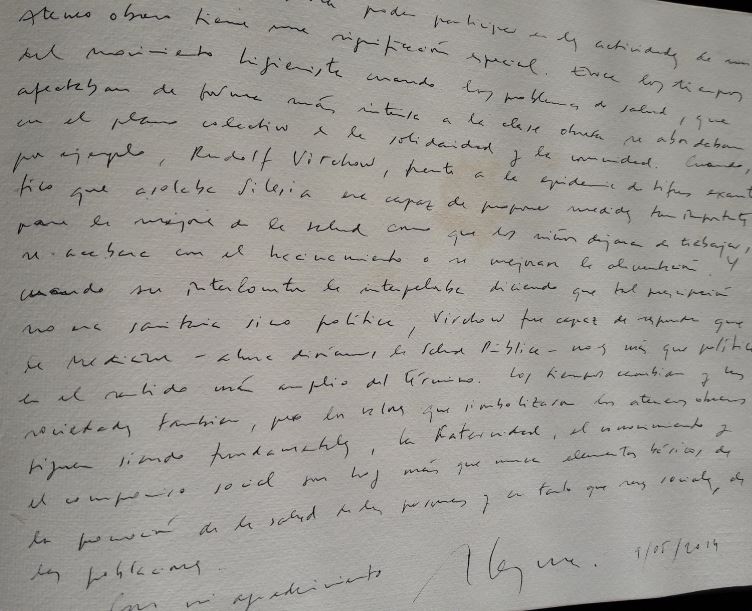 poder participar en las actividades de un
Ateneo obrero tiene una significación especial. Evoca los tiempos
del movimiento higienista cuando los problemas de salud, que
afectaban de forma más intensa a la clase obrera se abordaban
en el plano colectivo de la solidaridad y la comunidad. Cuando,
por ejemplo, Rudolf Virchow, frente a la epidemia de tifus exant
tico que asolaba Silesia era capaz de proponer medidas tan importantes
para la mejora de la salud como que los niños dejaran de trabajar,
se acabara con el hacinamiento o se mejorara la alimentación. Y
cuando su interlocutor le interpelaba diciendo que tal prescripción
no era sanitaria sino política, Virchow fue capaz de responder que
la Medicina - ahora diríamos, la Salud Pública - no es más que política
en el sentido más amplio del término. Los tiempos cambian y las
sociedades también, pero los valores que simbolizaron los ateneos obreros
siguen siendo fundamentales, la fraternidad, el conocimiento y
el compromiso social son hoy más que nunca elementos básicos de
la promoción de la salud de las personas y en tanto que seres sociales, de
las poblaciones.
Con mi agradecimiento
9/05/2014